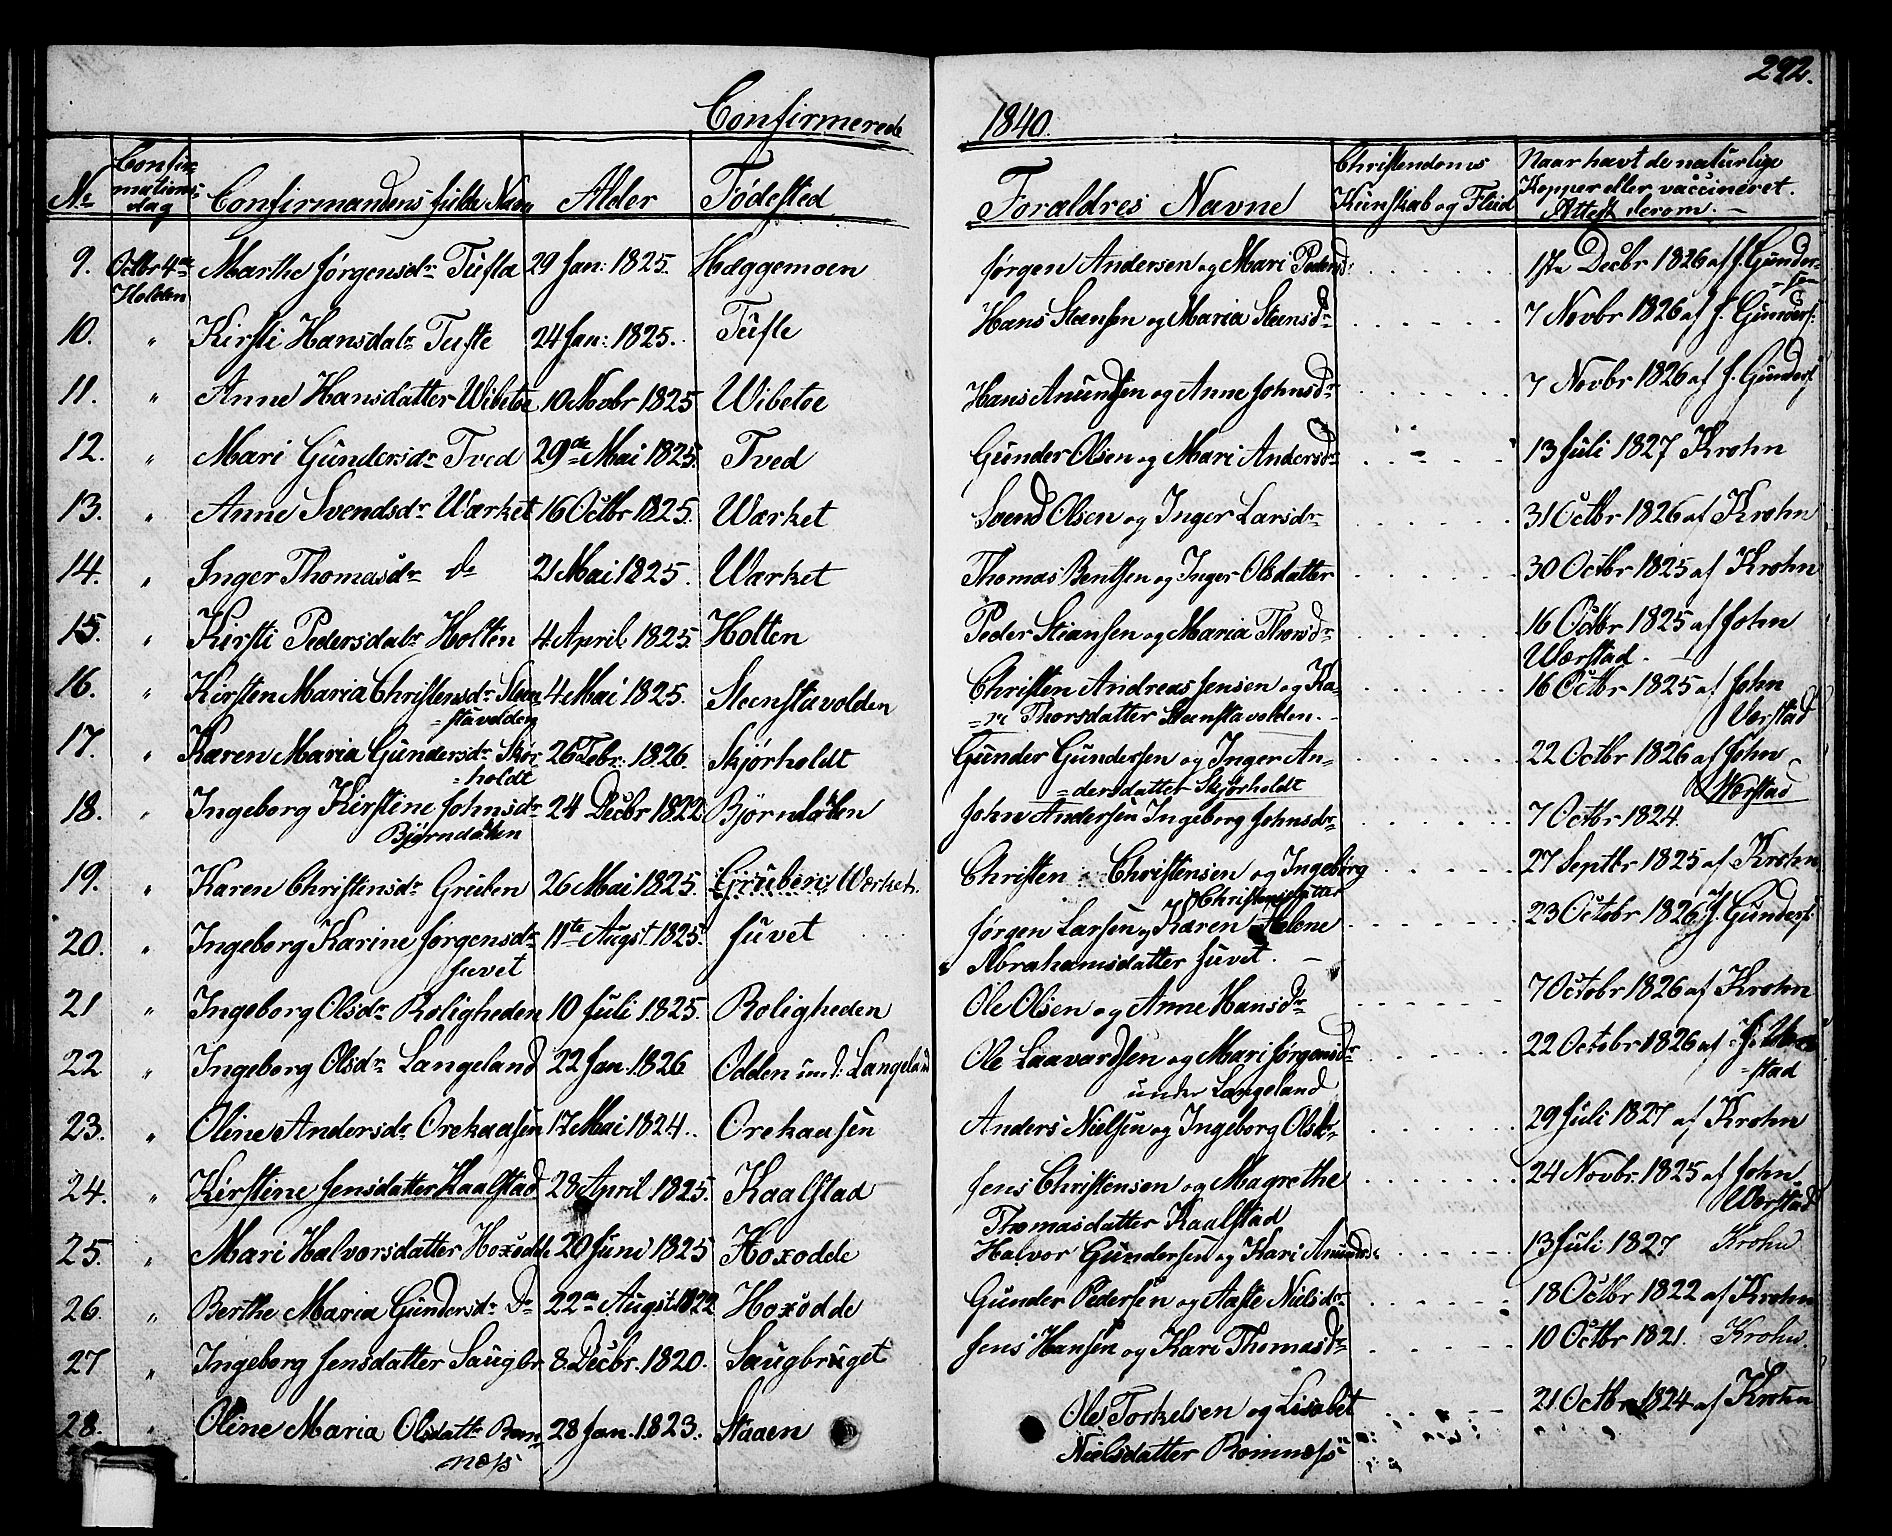 292.
Confirmerede 1840.
No Confirmations dag Confirmandens fulde Navn Alder Fødested Forældres Navne Christendoms Kunskab og Flid Naar havt de naturlige Kopper eller vaccineret. Attest derom. —
9. Octbr 4de Holden Marthe Jørgensdr Tufta 29 Jan: 1825. Hæggemoen Jørgen Andersen og Mari Pedersd: 1ste Decbr 1826 af J. Gunder=
=se=
10. " Kirsti Hansdatr Tufte 24 Jan: 1825. Tufte Hans Steensen og Maria Steensdr 7 Novbr 1826 af J. Gunders:
11. " Anne Hansdatter Wibetoe 10 Novbr 1825 Wibetoe Hans Anundsen og Anne Johnsdr 7 Novbr 1826 af J. Gunders
12. " Mari Gundersdr Tved 29de Mai 1825. Tved Gunder Olsen og Mari Andersdr 13 Juli 1827 Krohn
13. " Anne Svendsdr Værket 16 Octbr 1825. Værket Svend Olsen og Inger Larsdr 31 Octbr 1826 af Krohn
14. " Inger Thomasdr do 21 Mai 1825. Værket Thomas Bentsen og Inger Olsdatter 30 Octbr 1825 af Krohn
15. " Kirsti Pedersdatr Holten 4 April 1825. Holten Peder Stiansen og Maria Thorsdr 16 Octbr 1825 af John
Værstad.
16. " Kirsten Maria Christensdr Steen 4 Mai 1825. Steenstavolden Christen Andreas Jensen og Ka- 16 Octbr 1825 af John
=stavolden =ri Thorsdatter Steenstavolden. Verstad
17. " Karen Maria Gundersdr Skjør 26 Febr: 1826. Skjørholdt Gunder Gundersen og Inger An- 22 Octbr 1826 af John
=holdt =dersdatter Skjørholdt Værstad
18. " Ingeborg Kirstine Johnsdr 24 Decbr 1822 Bjørndalen John Andersen Ingeborg Johnsdr 7 Octbr 1824.
Bjørndalen
19. " Karen Christensdr Gruben 26 Mai 1825. Gruben, Værket. Christen Christensen og Ingeborg 27 Septbr 1825 af Krohn
20. " Ingeborg Karine Jørgensdr 11te Augst. 1825. Juvet Jørgen Larsen og Karen Helene 23 Octobr 1826 J. Gunders:
Juvet Abrahamsdatter Juvet. —
21 " Ingeborg Olsdr Roligheden 10 Juli 1825. Roligheden Ole Olsen og Anne Hansdr 7 Octobr 1826 af Krohn
22 " Ingeborg Olsdr Langeland 22 Jan. 1826 Odden und: Langeland Ole Laavardsen og Mari Jørgensdr 22 Octobr 1826 af J.
under Langeland =stad
23. " Oline Andersdr Orekaasen 17 Mai 1824. Orekaasen Anders Nielsen og Ingeborg Olsdr 29 Juli 1827 af Krohn
24. " Kirstine Jensdatter Kaalstad 28 April 1825. Kaalstad Jens Christensen og Magrethe 24 Novbr. 1825 af John
Thomasdatter Kaalstad Værstad
25. " Mari Halvorsdatter Hoxodde 20 Juni 1825 Hoxodde Halvor Gundersen og Kari Anundsd: 13 Juli 1827 Krohn
26. " Berthe Maria Gundersdr Do 22de Augst 1822 Hoxodde Gunder Pedersen og Aaste Nielsdr 18 Octbr 1822 af Krohn
27 " Ingeborg Jensdatter Saugbr 8. Decbr. 1820. Saugbruget Jens Hansen og Kari Thomasdr 10 Octbr 1821. Krohn.
28. " Oline Maria Olsdattr Rom- 28 Jan. 1823. Staaen Ole Torkelsen og Lisabet 21 Octbr 1824 af Krohn
næss Nielsdatter Romnæss